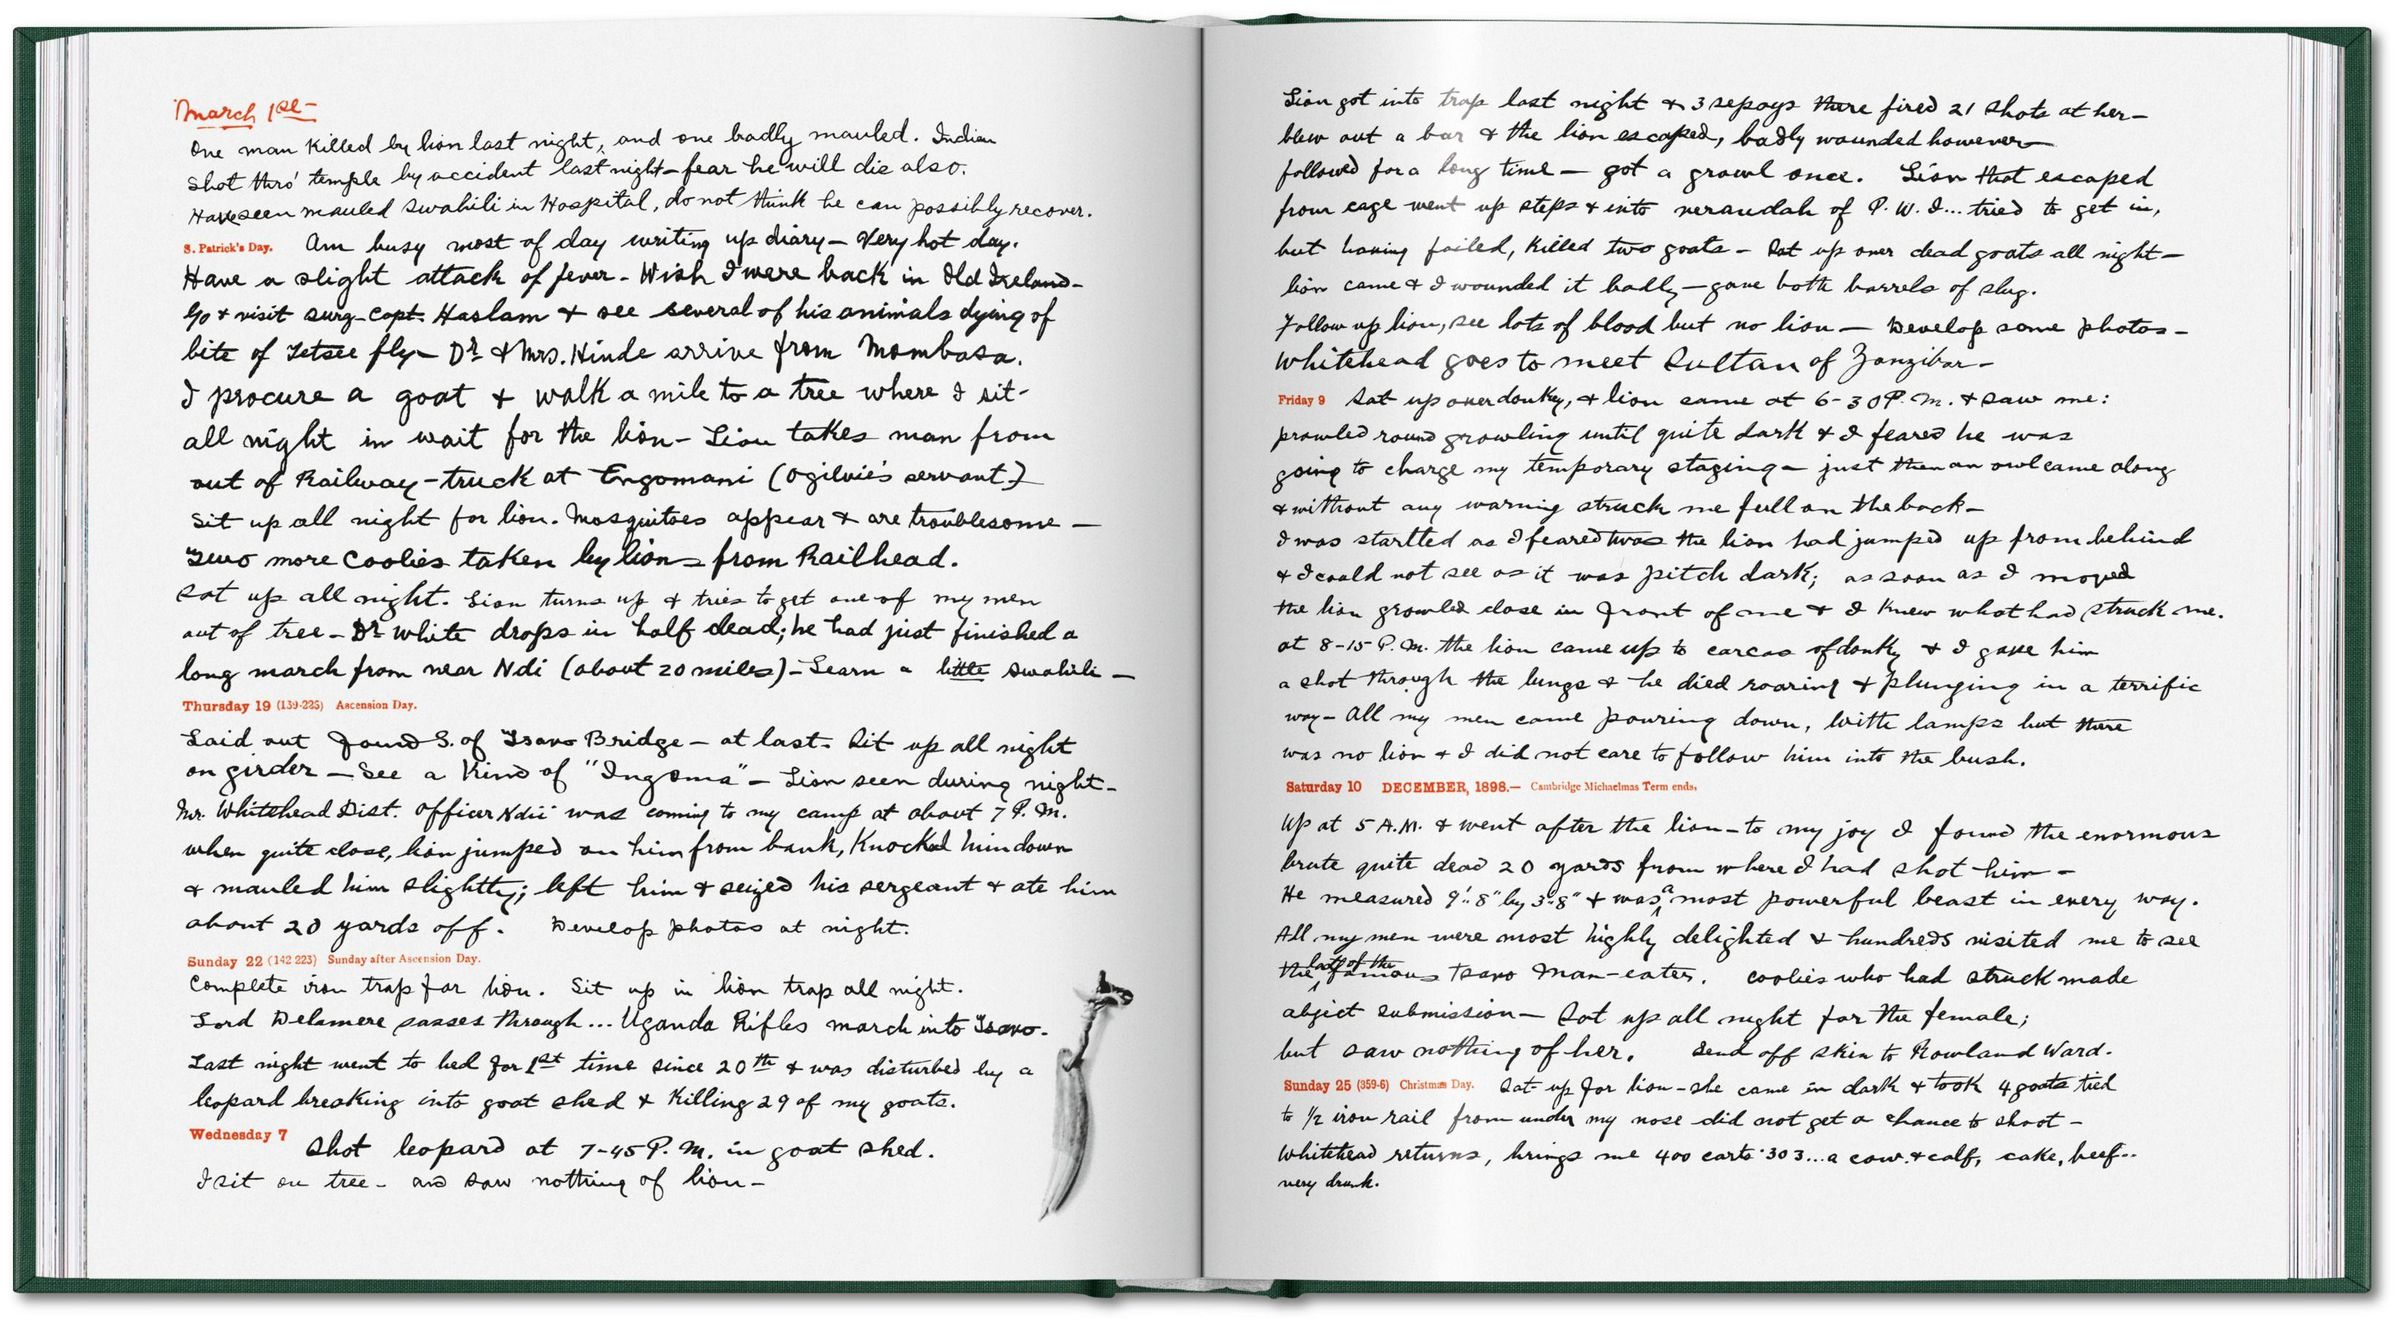 March 1st—
One man killed by lion last night, and one badly mauled. Indian
shot thro' temple by accident last night—fear he will die also.
Have seen mauled Swahili in Hospital, do not think he can possibly recover.
S. Patrick's Day. Am busy most of day writing up diary— Very hot day.
Have a slight attack of fever— Wish I were back in Old Ireland—
Go & visit Surg-Capt. Haslam & see several of his animals dying of
bite of Tetsee fly— Dr & Mrs. Hinde arrive from Mombasa.
I procure a goat & walk a mile to a tree where I sit—
all night in wait for the lion— Lion takes man from
out of Railway-truck at Engomani (Ogilvie's servant)
Sit up all night for lion. Mosquitoes appear & are troublesome—
Two more Coolies taken by lions from Railhead.
Sat up all night. Lion turns up & tries to get one of my men
out of tree— Dr White drops in half dead; he had just finished a
long march from near Ndi (about 20 miles)— Learn a little Swahili—
Thursday 19 (139-226) Ascension Day.
Laid out found S. of Tsavo Bridge— at last. Sit up all night
on girder— See a kind of "Ingoma"— Lion seen during night—
Mr. Whitehead Dist. Officer Ndii was coming to my camp at about 7 P.M.
when quite close, lion jumped on him from bank, knocked him down
& mauled him slightly; left him & seized his sergeant & ate him
about 20 yards off. Develop photos at night.
Sunday 22 (142 223) Sunday after Ascension Day.
Complete iron trap for lion. Sit up in lion trap all night.
Lord Delamere passes through... Uganda Rifles march into Tsavo.
Last night went to bed for 1st time since 20th & was disturbed by a
leopard breaking into goat shed & killing 29 of my goats.
Wednesday 7 Shot leopard at 7-45 P.M. in goat shed.
I sit on tree— and saw nothing of lion—
Lion got into trap last night & 3 sepoys there fired 21 shots at her—
blew out a bar & the lion escaped, badly wounded however—
followed for a long time— got a growl once. Lion that escaped
from cage went up steps & into verandah of P.W.I... tried to get in,
but having failed, killed two goats— Sat up over dead goats all night—
lion came & I wounded it badly—gave both barrels of slug.
Follow up lion, see lots of blood but no lion— Develop some photos—
Whitehead goes to meet Sultan of Zanzibar—
Friday 9 Sat up over donkey, & lion came at 6-30 P.M. & saw me:
prowled round growling until quite dark & I feared he was
going to charge my temporary staging— just then an owl came along
& without any warning struck me full on the back—
I was startled as I feared twas the lion had jumped up from behind
& I could not see as it was pitch dark; as soon as I moved
the lion growled close in front of me & I knew what had struck me.
at 8-15 P.M. the lion came up to carcas of donky & I gave him
a shot through the lungs & he died roaring & plunging in a terrific
way— All my men came pouring down, with lamps but there
was no lion & I did not care to follow him into the bush.
Saturday 10 DECEMBER, 1898.— Cambridge Michaelmas Term ends.
Up at 5 A.M. & went after the lion—to my joy I found the enormous
brute quite dead 20 yards from where I had shot him—
He measured 9':8" by 3':8" & was a most powerful beast in every way.
All my men were most highly delighted & hundreds visited me to see
the last of the famous Tsavo man-eater. Coolies who had struck made
abject submission— Sat up all night for the female;
but saw nothing of her. Send off skin to Rowland Ward.
Sunday 25 (359-6) Christmas Day. Sat up for lion—she came in dark & took 4 goats tied
to ½ iron rail from under my nose did not get a chance to shoot—
Whitehead returns, brings me 400 carts ·303...a cow & calf, cake, beef—
very drunk.